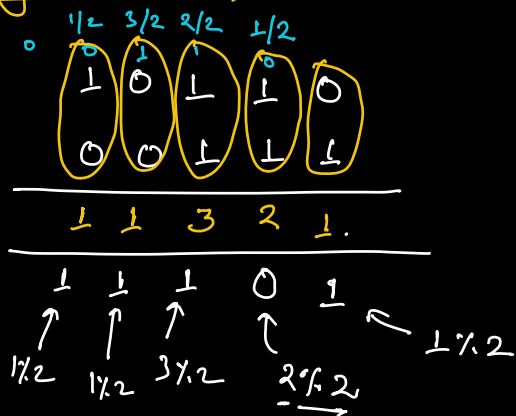 1/2 3/2 2/2 1/2
0 0 1 1 0
1 0 1 1 0
0 0 1 1 1
1 1 3 2 1.
1 1 1 0 1
1%2 1%2 3%2 2%2 1%2